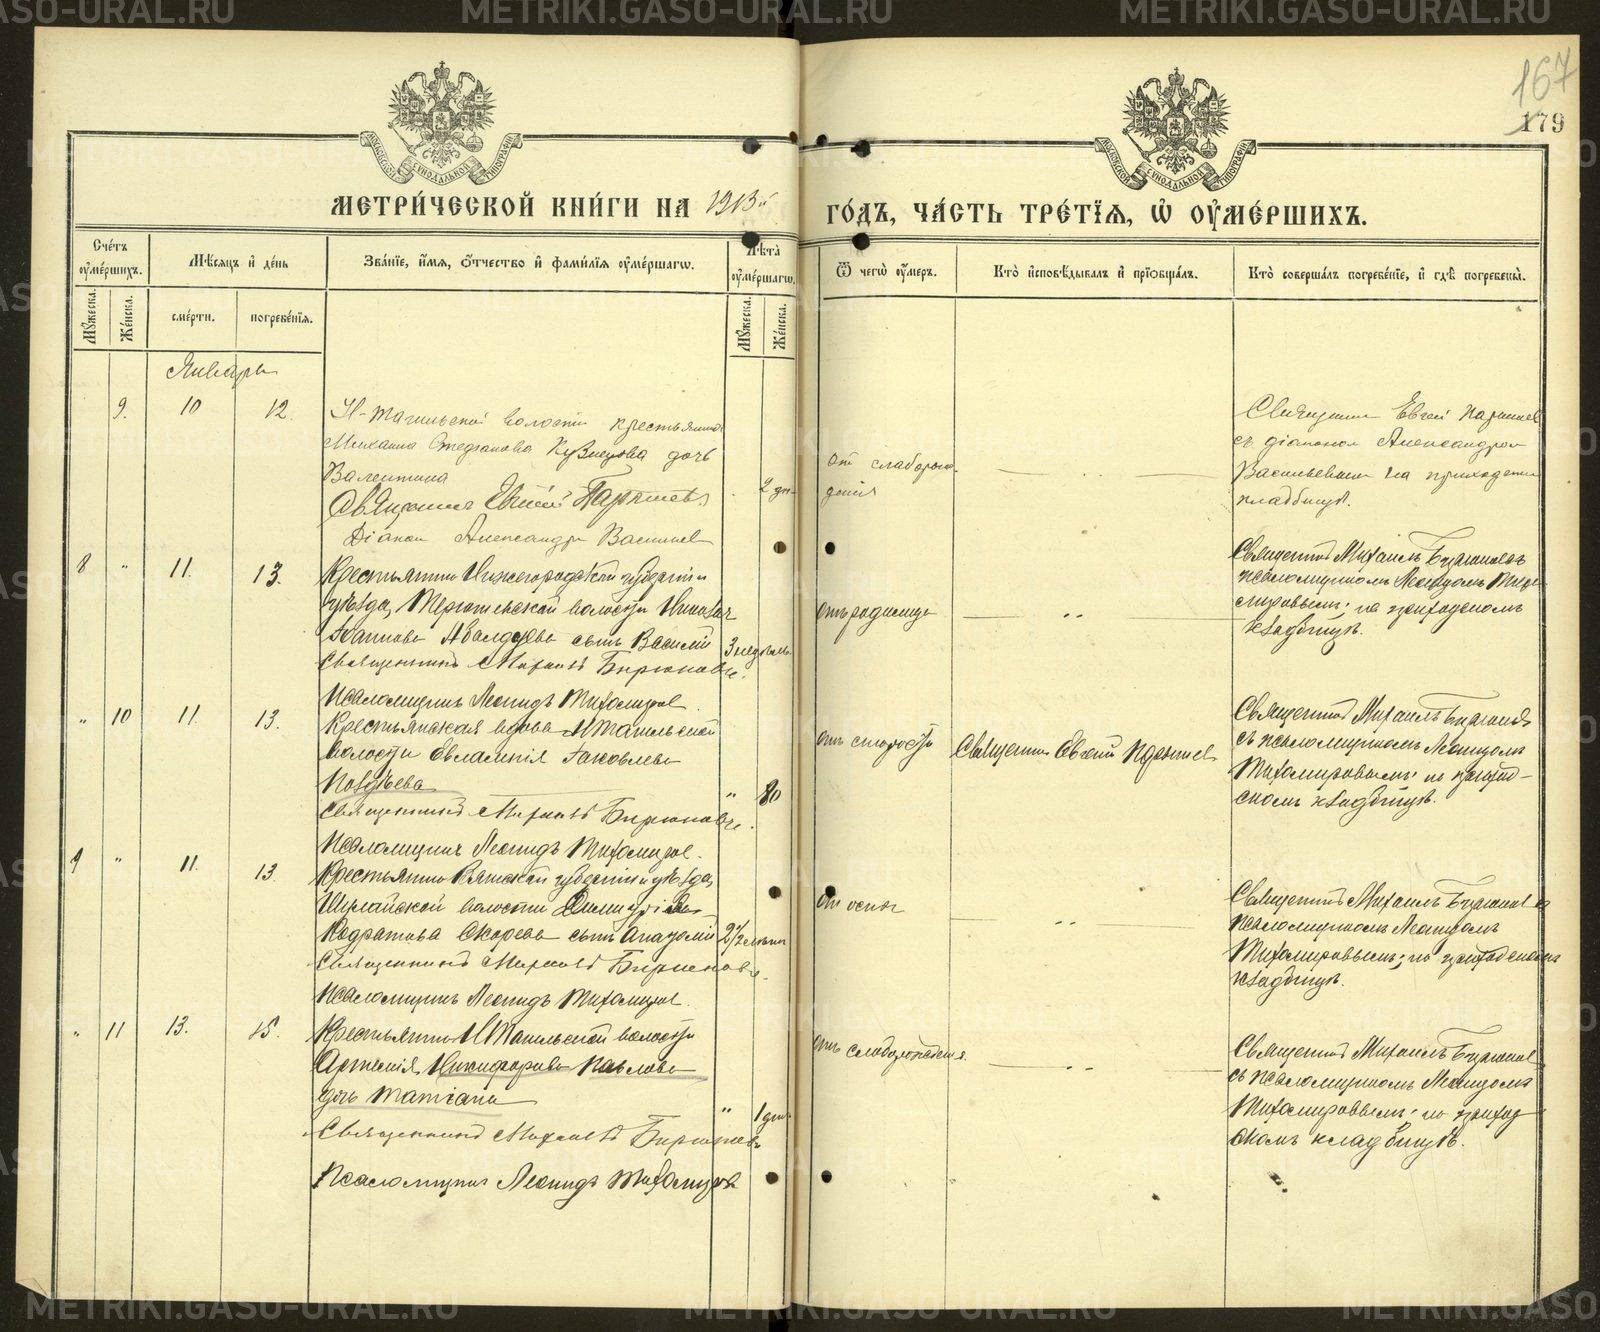 METRIKI.GASO-URAL.RU
167
179
МОСКОВСКОЙ СѴНОДАЛЬНОЙ ТИПОГРАФІИ
МОСКОВСКОЙ СѴНОДАЛЬНОЙ ТИПОГРАФІИ
МЕТРИ́ЧЕСКОЙ КНИ́ГИ НА 1913й ГО́ДЪ, ЧА́СТЬ ТРЕ́ТІѦ, Ѡ҆ ОУ҆МЕ́РШИХЪ.
Счетъ оумершихъ.
Мужеска.
Женска.
Мѣсяцъ и день
смерти.
погребенія.
Званіе, имя, отчество и фамилія оумершагѡ.
Лѣта оумершагѡ.
Мужеска.
Женска.
Ѿ чегѡ оумеръ.
Кто исповѣдывалъ и пріобщалъ.
Кто совершалъ погребеніе, и гдѣ погребены.
Январь
9. 10 12.
Н-Тагильской волости крестьянина
Михаила Стефанова Кузнецова дочь
Валентина
2 дн.
Священник Евгеній
Діакон Александръ Васильев
от слаборож-
дения
Священник Евгеній
съ діаконом Александром
Васильевым на приходском
кладбищѣ.
8 " 11. 13.
Крестьянина Нижегородской губерніи и
уѣзда, волости Николая
Іоаннова сынъ Василій
3 недѣль
Священникъ Михаилъ Бирюковъ
Псаломщикъ Леонидъ Тихомиров.
отъ родимца
Священникъ Михаилъ Бирюковъ
псаломщикомъ Леонидомъ Тихо-
мировымъ; на приходскомъ
кладбищѣ.
" 10 11. 13.
Крестьянская вдова Н Тагильской
волости Евлампія Іаковлева
Поздѣева
" 80
Священникъ Михаилъ Бирюковъ.
Псаломщикъ Леонидъ Тихомиров.
отъ старости
Священник Евгеній
Священникъ Михаилъ Бирюковъ
съ псаломщикомъ Леонидомъ
Тихомировымъ: на приход-
скомъ кладбищѣ.
9 " 11. 13.
Крестьянина Вятской губерніи и уѣзда,
волости Димитрія
Кодратова сынъ
2½ лѣтъ
Священникъ Михаилъ Бирюковъ.
Псаломщикъ Леонидъ Тихомиров.
от оспы
Священникъ Михаилъ Бирюков с
псаломщикомъ Леонидомъ
Тихомировымъ; на приходскомъ
кладбищѣ.
" 11 13. 15.
Крестьянина Н Тагильской волости
Артемія Никифорова Павлова
дочь Татіана
" 1 дня
Священникъ Михаилъ Бирюковъ
Псаломщикъ Леонидъ Тихомировъ
отъ слаборожденія
Священникъ Михаилъ Бирюков
съ псаломщикомъ Леонидомъ
Тихомировымъ: на приход
скомъ кладбищѣ.